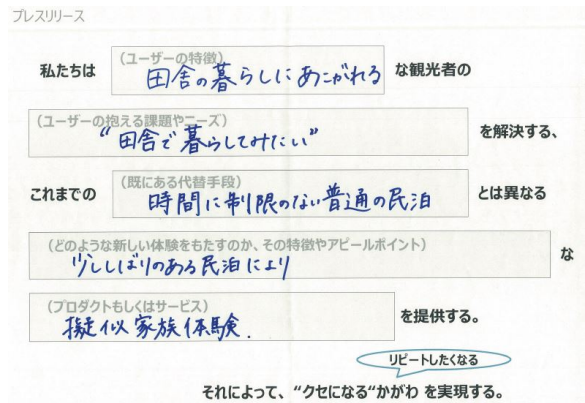 プレスリリース
私たちは (ユーザーの特徴) 田舎の暮らしにあこがれる な観光者の
(ユーザーの抱える課題やニーズ)
“田舎で暮らしてみたい” を解決する、
これまでの (既にある代替手段) 時間に制限のない普通の民泊 とは異なる
(どのような新しい体験をもたすのか、その特徴やアピールポイント)
少ししばりのある民泊により な
(プロダクトもしくはサービス)
擬似家族体験. を提供する。
リピートしたくなる
それによって、“クセになる“かがわ を実現する。